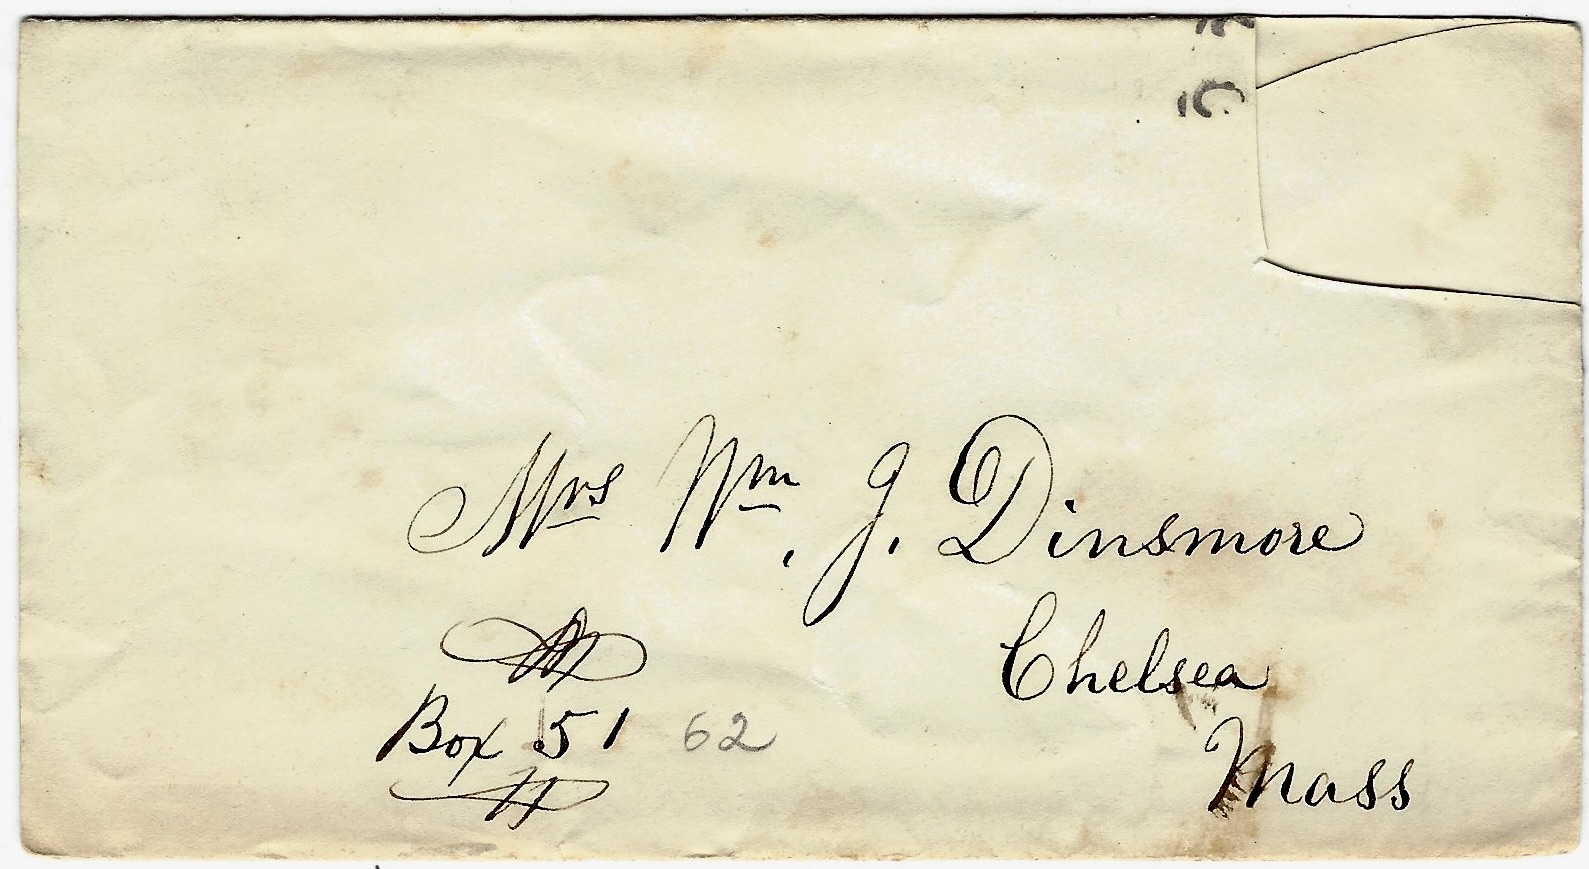 Mrs Wm. J. Dinsmore
Chelsea
Mass
Box 51 62